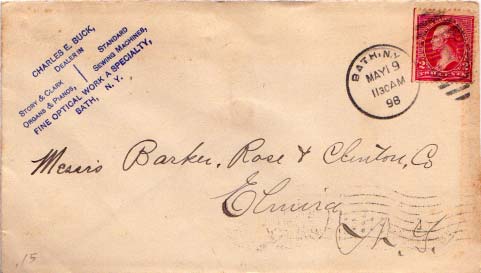 CHARLES E. BUCK,
DEALER IN
STORY & CLARK
ORGANS & PIANOS,
STANDARD
SEWING MACHINES,
FINE OPTICAL WORK A SPECIALTY,
BATH, N. Y.
BATH. N.Y.
MAY 19
1130AM
98
2 2
TWO CENTS
Messrs Barker, Rose & Clinton, Co
Elmira
N. Y.
.15